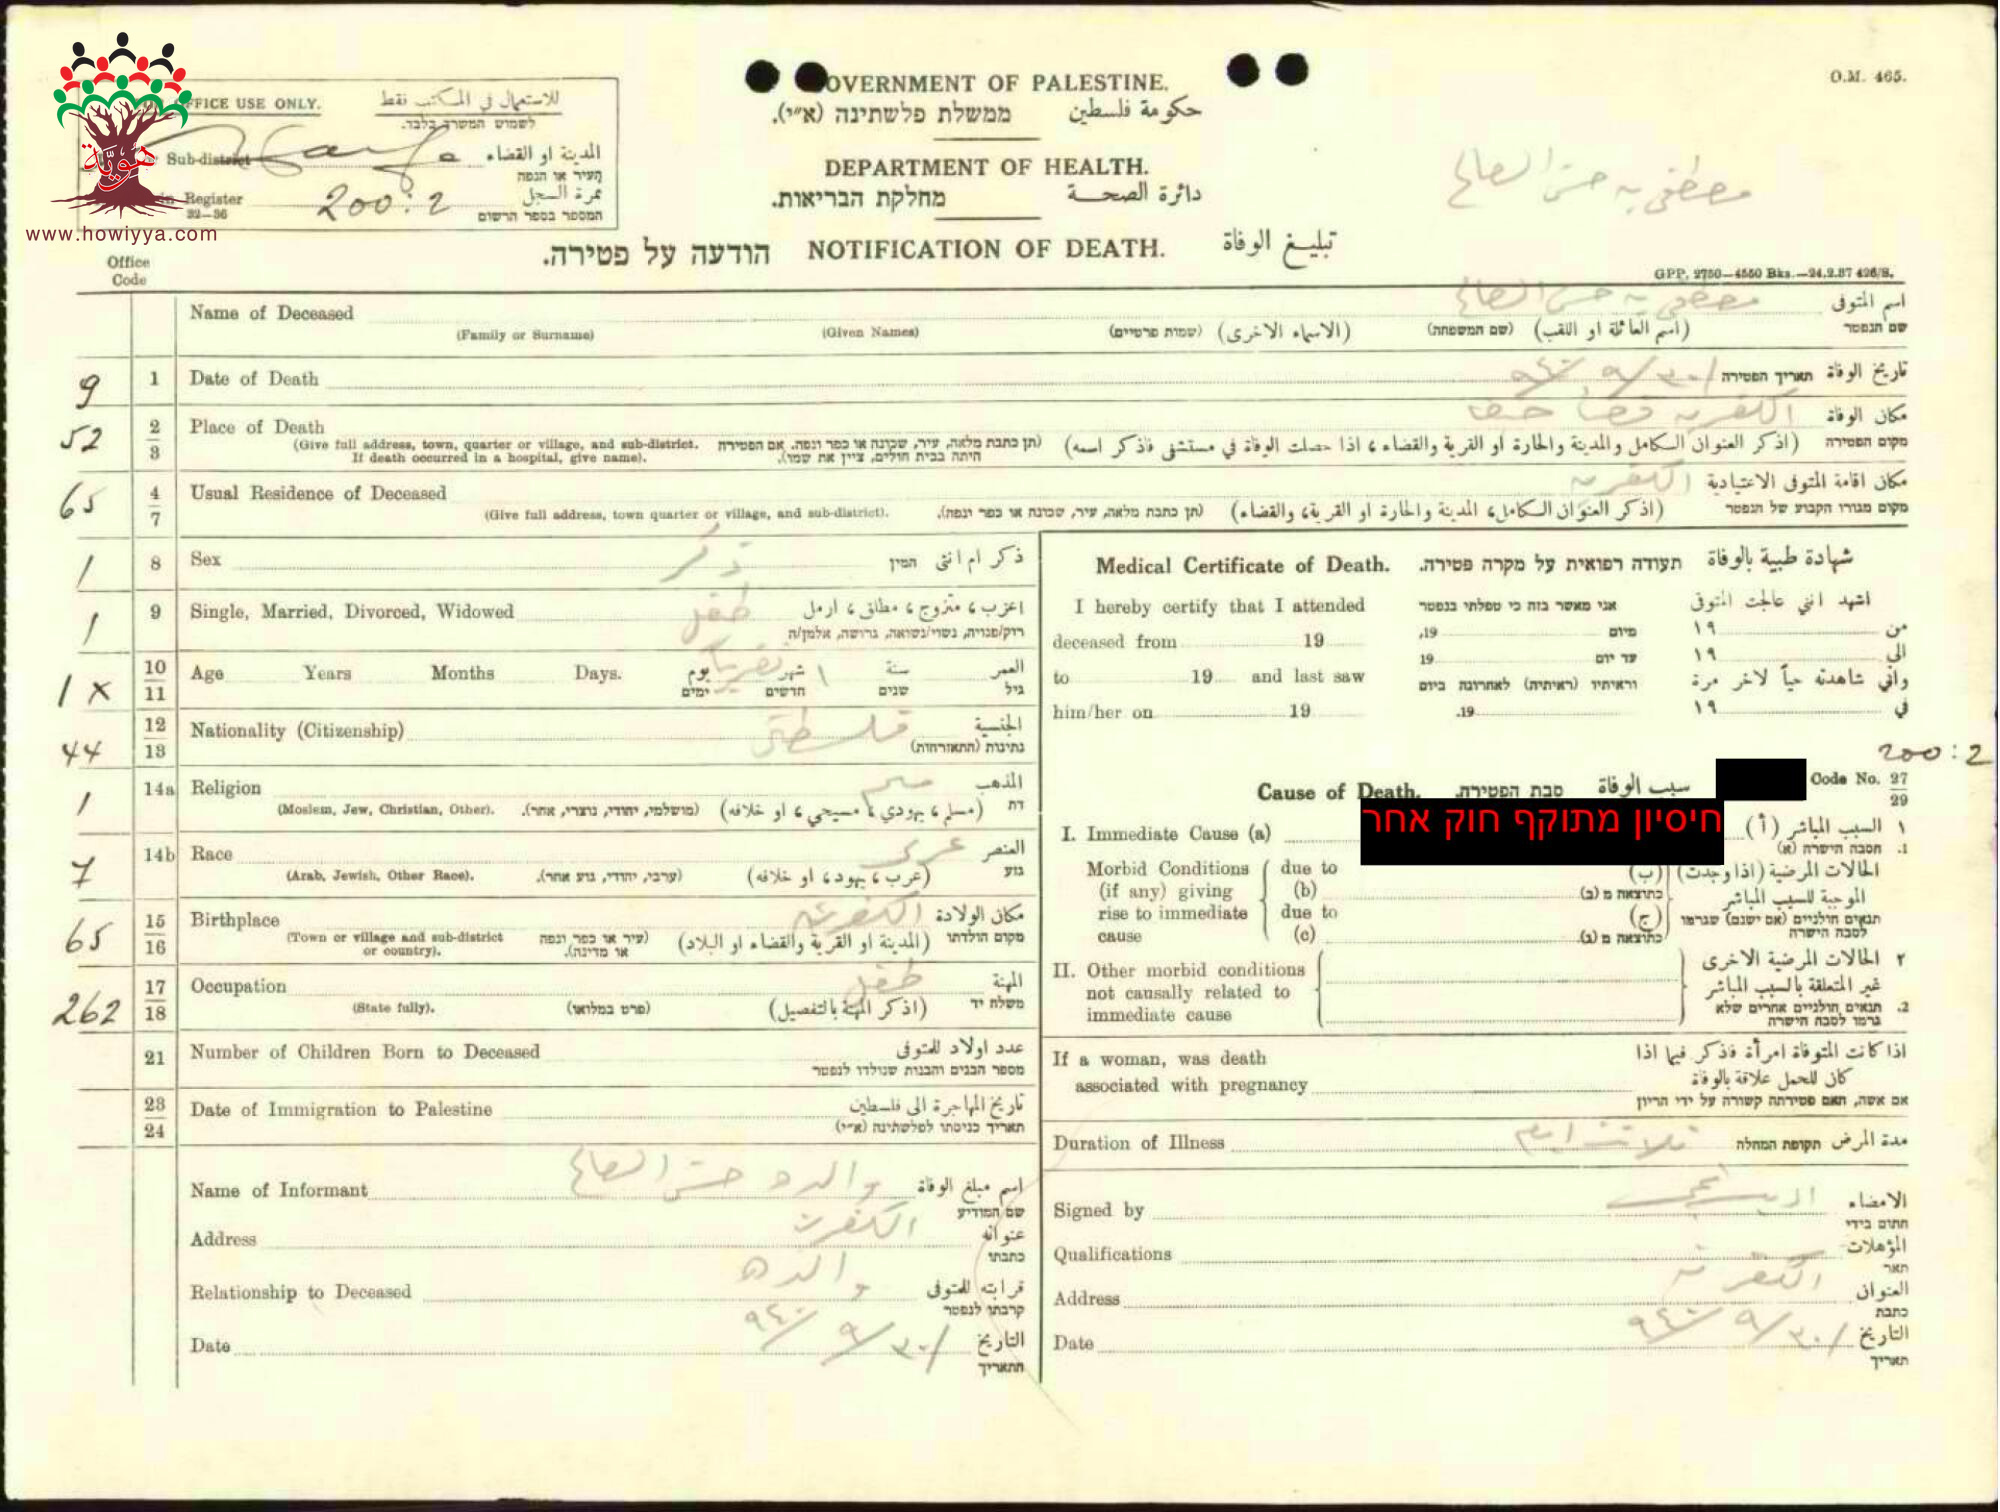 GOVERNMENT OF PALESTINE.
ممשלת פלשתינה (א״י). حكومة فلسطين
DEPARTMENT OF HEALTH.
מחלקת הבריאות. دائرة الصحة
הודעה על פטירה. NOTIFICATION OF DEATH. تبليغ الوفاة
O.M. 465.
OFFICE USE ONLY. للاستعمال في المكتب فقط
לשמוש המשרד בלבד.
Sub-district المدينة او القضاء
העיר או הנפה
in Register 200:2 نمرة السجل
32—36 המספר בספר הרשום
www.howiyya.com
هويّة
مصطفى حسن الصالح
GPP. 2750—4550 Bks.—24.2.37 426/S.
Office
Code
Name of Deceased مصطفى حسن الصالح اسم المتوفى
(Family or Surname) (Given Names) (שמות פרטיים) (الاسماء الاخرى) (שם המשפחה) (اسم العائلة او اللقب) שם הנפטר
9 1 Date of Death ٣٠/٩/٩٤٠ תאריך הפטירה تاريخ الوفاة
52 2 3 Place of Death الكفرين قضا حيفا مكان الوفاة
(Give full address, town, quarter or village, and sub-district. (תן כתבת מלאה, עיר, שכונה או כפר ונפה. אם הפטירה (اذكر العنوان الكامل والمدينة والحارة او القرية والقضاء ، اذا حصلت الوفاة في مستشفى فاذكر اسمه) מקום הפטירה
If death occurred in a hospital, give name). היתה בבית חולים, ציין את שמו).
65 4 7 Usual Residence of Deceased الكفرين مكان اقامة المتوفى الاعتيادية
(Give full address, town quarter or village, and sub-district). (תן כתבת מלאה, עיר, שכונה או כפר ונפה). (اذكر العنوان الكامل، المدينة والحارة او القرية، والقضاء) מקום מגורו הקבוע של הנפטר
1 8 Sex ذكر המין ذكر ام انثى
1 9 Single, Married, Divorced, Widowed طفل اعزب ، متزوج ، مطلق ، ارمل
רוק/פנויה, נשוי/נשואה, גרושה, אלמן/ה
1 x 10 11 Age Years Months Days. تقريبا يوم شهر ١ سنة العمر
ימים חדשים שנים גיל
44 12 13 Nationality (Citizenship) الجنسية
נתינות (התאזרחות)
1 14a Religion مسلم المذهب
(Moslem, Jew, Christian, Other). (מושלמי, יהודי, נוצרי, אחר). (مسلم ، يهودي ، مسيحي ، او خلافه) דת
7 14b Race عربي العنصر
(Arab, Jewish, Other Race). (ערבי, יהודי, גזע אחר). (عرب ، يهود ، او خلافه) גזע
65 15 16 Birthplace الكفرين مكان الولادة
(Town or village and sub-district or country). (עיר או כפר ונפה או מדינה). (المدينة او القرية والقضاء او البلاد) מקום הולדתו
262 17 18 Occupation طفل المهنة
(State fully). (פרט במלואו) (اذكر المهنة بالتفصيل) משלח יד
21 Number of Children Born to Deceased عدد اولاد للمتوفى
מספר הבנים והבנות שנולדו לנפטר
23 24 Date of Immigration to Palestine تاريخ المهاجرة الى فلسطين
תאריך כניסתו לפלשתינה (א״י)
Name of Informant والده حسن الصالح اسم مبلغ الوفاة
שם המודיע
Address الكفرين عنوانه
כתבתו
Relationship to Deceased والده قرابته للمتوفى
קרבתו לנפטר
Date ٣٠/٩/٩٤٠ التاريخ
התאריך
Medical Certificate of Death. תעודה רפואית על מקרה פטירה. شهادة طبية بالوفاة
I hereby certify that I attended אני מאשר בזה כי טפלתי בנפטר اشهد انني عالجت المتوفى
deceased from 19 19, מיום ١٩ من
to 19 and last saw 19 עד יום ١٩ الى
וראיתיו (ראיתיה) לאחרונה ביום واني شاهدته حياً لاخر مرة
him/her on 19 19. ١٩ في
200:2
Cause of Death. סבת הפטירה. سبب الوفاة Code No. 27 29
חיסיון מתוקף חוק אחר
I. Immediate Cause (a) السبب المباشر (أ) ١
הסבה הישרה (א) 1.
Morbid Conditions (if any) giving rise to immediate cause
due to (b) כתוצאה מ (ב) (ب)
due to (c) כתוצאה מ (ג) (ج)
الحالات المرضية (اذا وجدت) الموجبة للسبب المباشر
תנאים חולניים (אם ישנם) שגרמו לסבה הישרה
II. Other morbid conditions not causally related to immediate cause
٢ الحالات المرضية الاخرى غير المتعلقة بالسبب المباشر
2. תנאים חולניים אחרים שלא גרמו לסבה הישרה
If a woman, was death associated with pregnancy
اذا كانت المتوفاة امرأة فاذكر فيما اذا كان للحمل علاقة بالوفاة
אם אשה, האם פטירתה קשורה על ידי הריון
Duration of Illness ثلاثة ايام תקופת המחלה مدة المرض
Signed by الامضاء
חתום בידי
Qualifications المؤهلات
תאר
Address الكفرين العنوان
כתבת
Date ٣٠/٩/٩٤٠ التاريخ
תאריך